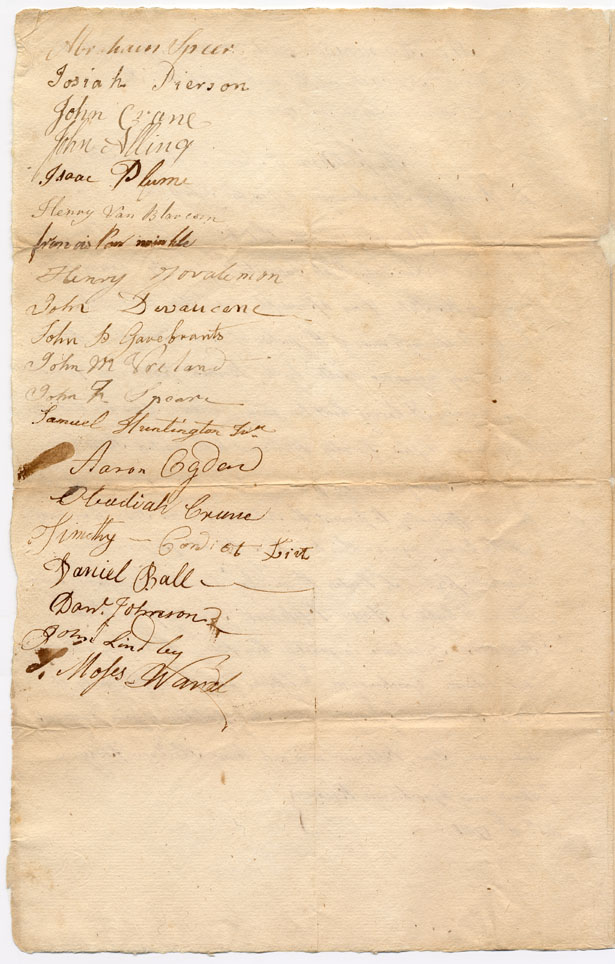 Abraham Speer
Josiah Pierson
John Crane
John Alling
Isaac Plume
Henry Van Blarcom
francis Van winkle
Henry
John
John B Garebrants
John M Vreland
John Speare
Samuel Huntington
Aaron Ogden
Obadiah Crane
Timothy
Daniel Ball
Dan. Johnson
John Lindsley
Moses Ward